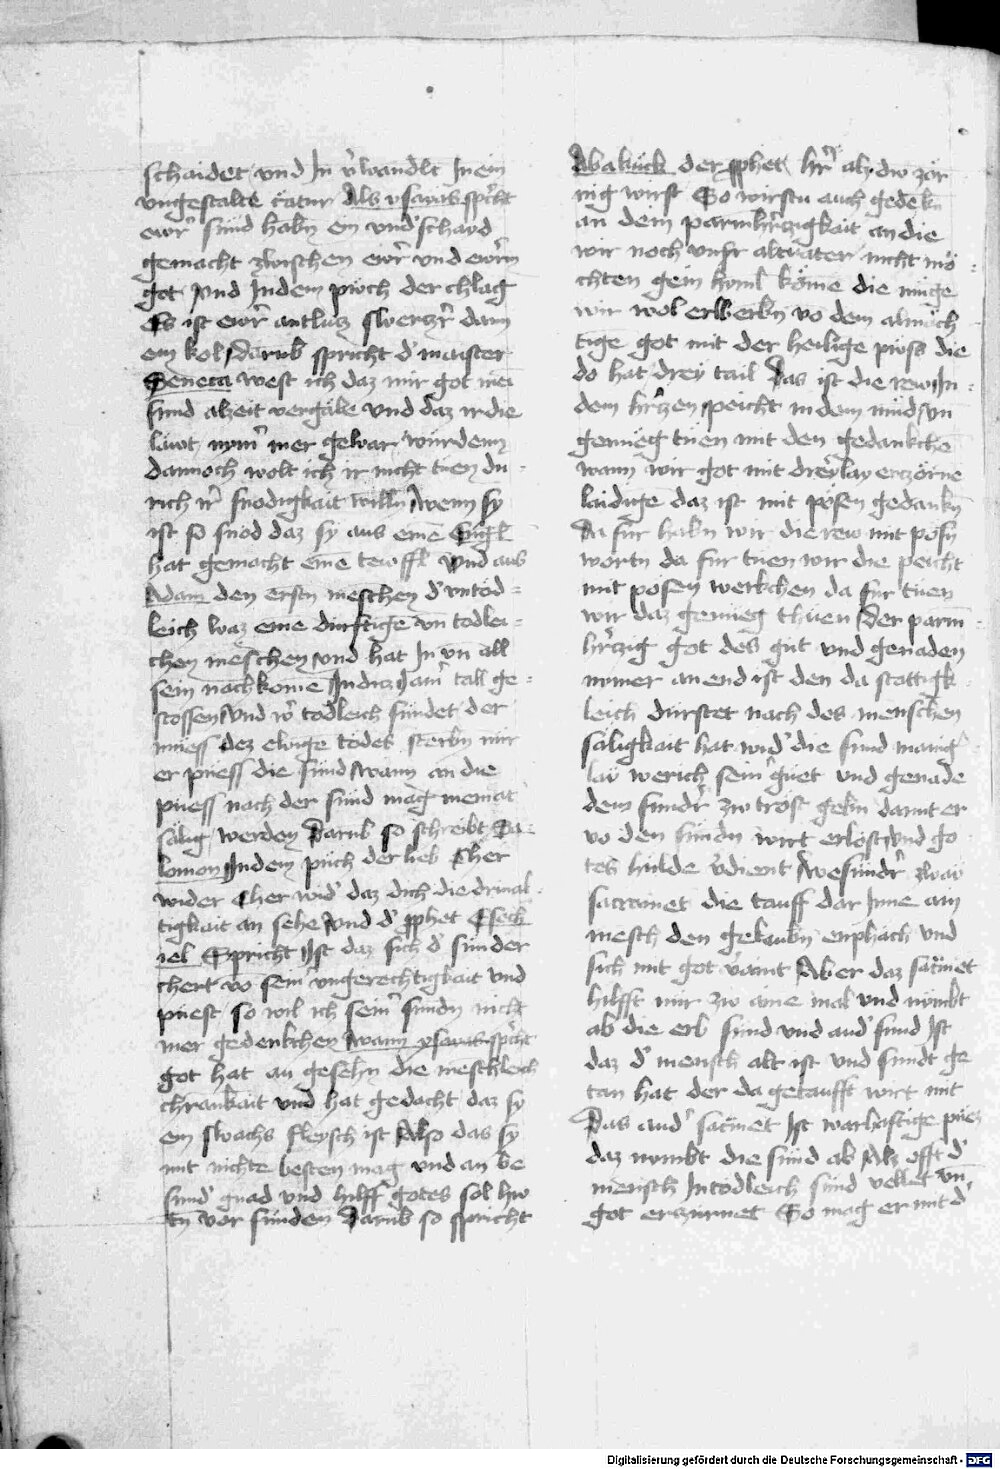 schaidet vnd Jn v̉wandlt Jn ein
vngestalte cᷓatur Als ysaias spͥcht
ewr̉ sünd habn̄ ein vnd'schayd
gemacht zwischen ewr̉ vnd ewrm̄
got Vnd Jndem püch der chlag
Es ist ewr̉ antlutz swerczr̉ dann
ein kol Darub̄ spricht d' maister
Seneca west ich daz mir got mei
sund alzeit vergäbe vnd daz ir die
läwt nym̄ mer gewar würdenn
dannoch wolt ich ir nicht tuen du¬
rich ir̉ snodigkait willn̄ Wenn sy
ist so snod daz sy aus eine͞ Engl
hat gemacht eine͞ tewffl Vnd aus
Adam den erstn̄ me͞schen d' vntöd¬
leich waz eine dürftige͞ vn̄ todlei¬
chen me͞schen vnd hat Jn vn̄ all
sein nachkome͞ Jn diz Jam̉ tall ge¬
stossen Vnd wr̉ todleich sündet der
müess dez ewige todes sterbn̄ nur
er püess die sünd Wann an die
püess nach der sünd mag niemāt
sälig werden Darub̄ so schreibt Sa¬
lomon Jndem püch der lieb Cher
wider Cher wid' daz dich die driual¬
tigkait an sehe Vnd d' ꝓphet Esech
iel Spricht Jst daz sich d' sünder
chert vo͞ sein̉ vngerechtigkait vnd
püest so wil ich sein̉ sündn̄ nicht
mer gedenkchen Wann ysaias spͥcht
got hat an gesehn̄ die me͞schleich
chrankait vnd hat gedacht daz sy
ein swachs fleysch ist Also das sy
mit nichte besten mag vnd an be
sund' gnad vnd hilff gotes sol hw
tn̄ vor sünden Darub̄ so spricht
Abakück der ꝓphet hr̉r als dw zör
nig wirst So wirstu auch gedekn̄
an dein parmhr̉czigkait an die
wir noch vnsr̉ altväter nicht mö¬
chten gein himl köme͞ die müge
wir wol erwerbn̄ vo͞ dem almäch
tige͞ got mit der heilige͞ püss die
do hat drey tail Das ist die rew Jn¬
dem hr̉czen peicht in dem mūd vn̄
genüeg tuen mit den gedankche͞
wann wir got mit dreylay erczörne͞
laidige͞ daz ist mit pösen gedankn̄
Da fur habn̄ wir die rew mit pösn̄
wortn̄ da fur tuen wir die peicht
mit posen werkchen da für tuen
wir daz genueg thuen Der parm̄
hr̉czig got des güt vnd genaden
nymer an end ist den da stättigk
leich dürstet nach des menschen
säligkait hat wid' die sund manig'
lay werich sein̉ güet vnd genade
dem sundr̉ zw tröst gebn̄ damit er
vo͞ den sündn̄ wirt erlöst vnd go¬
tes hulde v̉dient Wesundr̉ zway
sacramēt die tauff dar Jnne ain
mesch den gelaubn̄ enphach vnd
sich mit got v̉aint Aber daz sacᷓmet
hilfft nur zw aine mal vnd nymbt
ab die erb sünd vnd and' sund Jst
daz d' mensch alt ist vnd sundt ge
tan hat der da getaufft wirt mit
Das and' sacᷓmet Jst warhaftige püez
daz nymbt die sünd ab Alz offt d'
mensch Jn todleich sünd vellet vn̄
got erzürnet So mag er mit d'